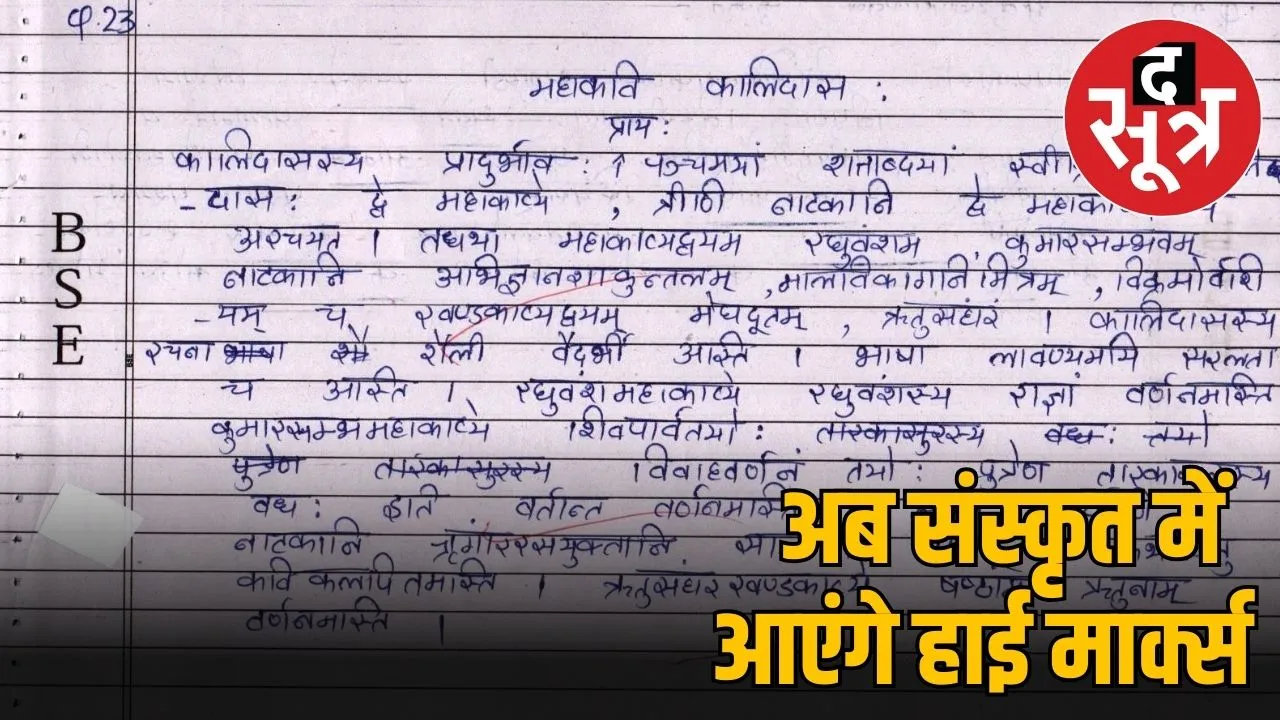 φ.23
महाकवि कालिदास :
प्रायः
कालिदासस्य प्रादुर्भावः पञ्चमयां शताब्दयां
-दासः द्वे महाकाव्ये , त्रीणि नाटकानि द्वे
अरचयत् । तद्यथा महाकाव्यद्वयम रघुवंशम् , कुमारसम्भवम्
नाटकानि अभिज्ञानशाकुन्तलम् , मालविकागानिमित्रम् , विक्रमोर्वाशि
-यम् च खण्डकाव्यद्वयम् मेघदूतम् , ऋतुसंहारं । कालिदासस्य
रचना शैली वैदर्भी अस्ति । भाषा लावण्यमयि सरलता
च अस्ति । रघुवंशमहाकाव्ये रघुवंशस्य राज्ञां वर्णनमस्ति
कुमारसम्भमहाकाव्ये शिवपार्वतयोः तारकासुरस्य वधः तयो
पुत्रेण तारकासुरस्य विवाहवर्णनं तयोः पुत्रेण
वधः इति वर्तान्त
नाटकानि
कवि कल्पितमास्ति । षष्ठां ऋतुनाम्
वर्णनमास्ति ।
B
S
E
द
सूत्र
अब संस्कृत में
आएंगे हाई मार्क्स